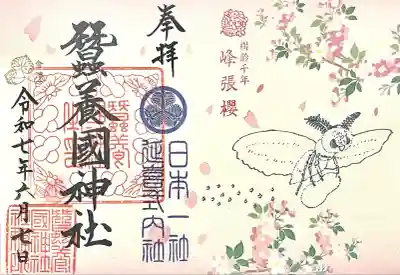 樹齢千年
峰張櫻
奉拝
日本一社
延喜式内社
蠶養國神社
令和七年六月七日
蠶養國神社印